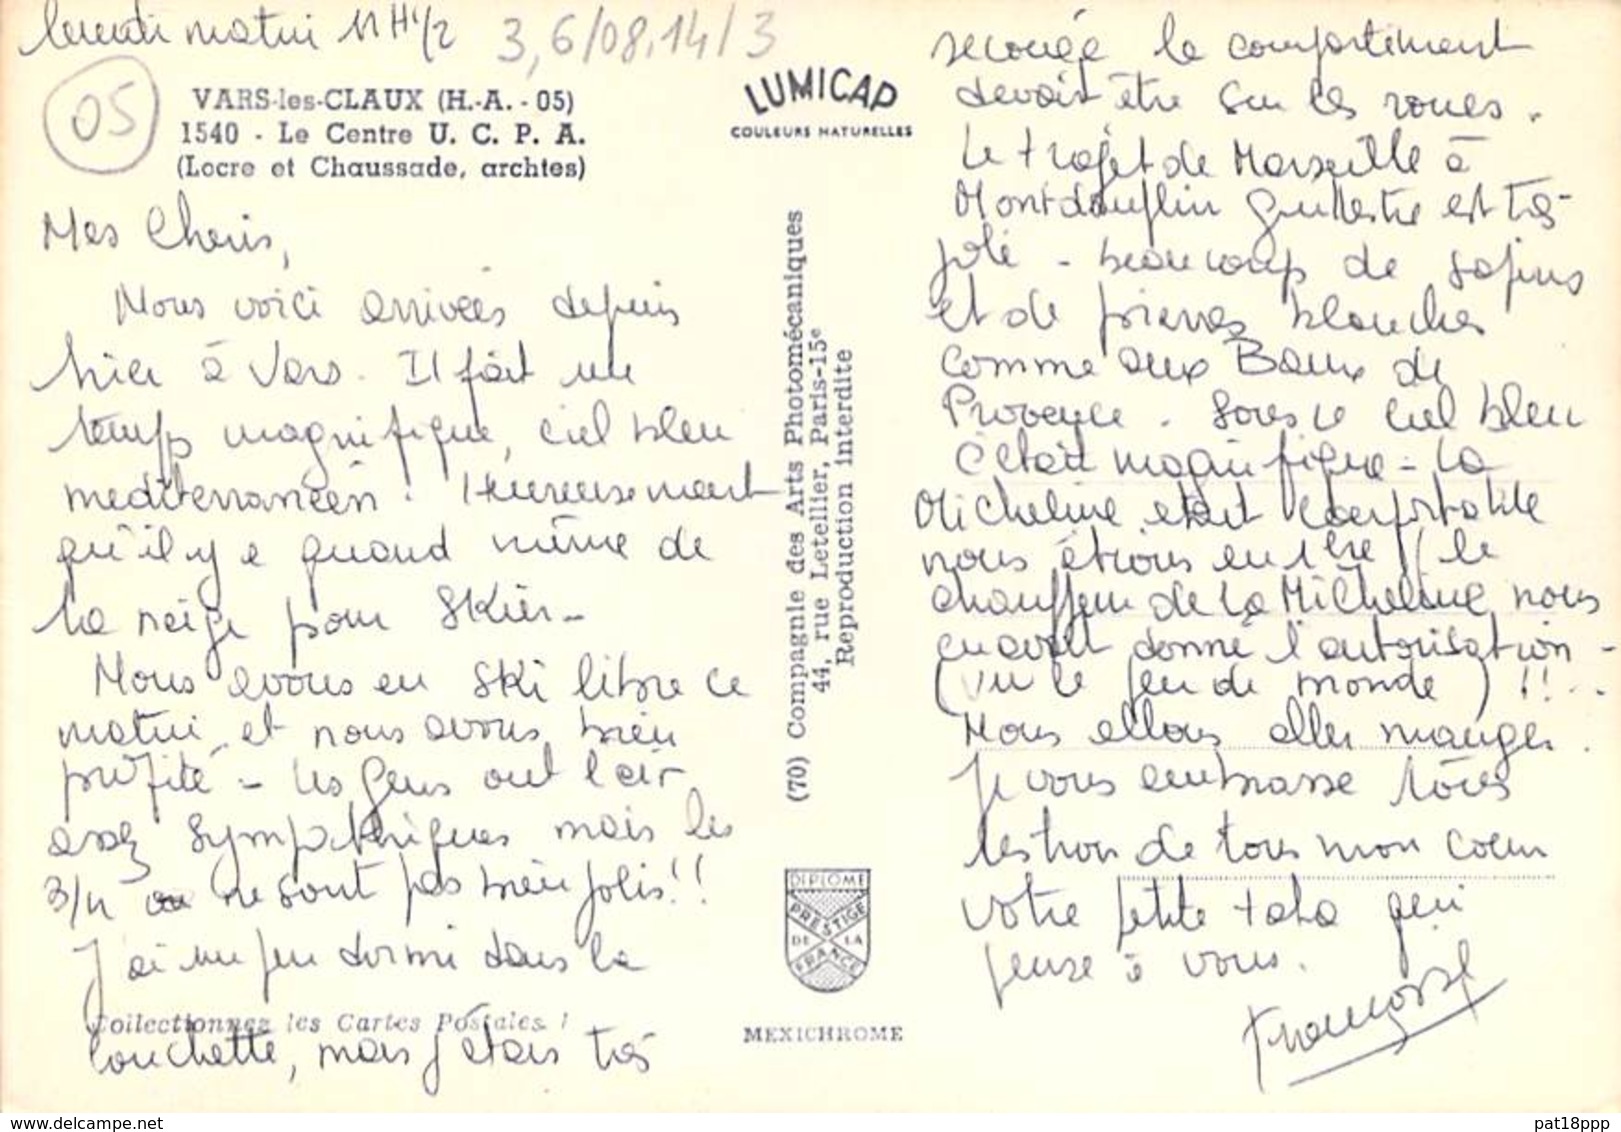 lundi matin 11 H 1/2
3,6/08.14/3
05
VARS-les-CLAUX (H.-A. - 05)
1540 - Le Centre U. C. P. A.
(Locre et Chaussade, archtes)
Mes Cheris,
Nous voici arrivées depuis
hier à Vars. Il fait un
temps magnifique, ciel bleu
mediterranéen ! Heureusement
qu'il y a quand même de
la neige pour skier -
Nous avons eu ski libre ce
matin et nous avons bien
profité - Les gens ont l'air
assez sympathiques mais les
3/4 ne sont pas bien jolis !!
J'ai un peu dormi dans la
couchette, mais j'étais très
Collectionnez les Cartes Postales !
LUMICAP
COULEURS NATURELLES
(70) Compagnie des Arts Photomécaniques
44, rue Letellier, Paris-15e
Reproduction interdite
DIPLOME
PRESTIGE
DE LA
FRANCE
MEXICHROME
secouée le compartiment
devait être sur les roues.
Le trajet de Marseille à
Montdauphin Guillestre est très
joli - beaucoup de sapins
et de pierres blanches
comme aux Baux de
Provence. Sous ce ciel bleu
c'était magnifique - La
Micheline était confortable
nous étions en 1ère (le
chauffeur de la Micheline nous
en avait donné l'autorisation -
(vu le peu de monde) !!..
Nous allons aller manger.
Je vous embrasse tous
les trois de tout mon coeur
votre petite tata qui
pense à vous.
Françoise
pat18ppp